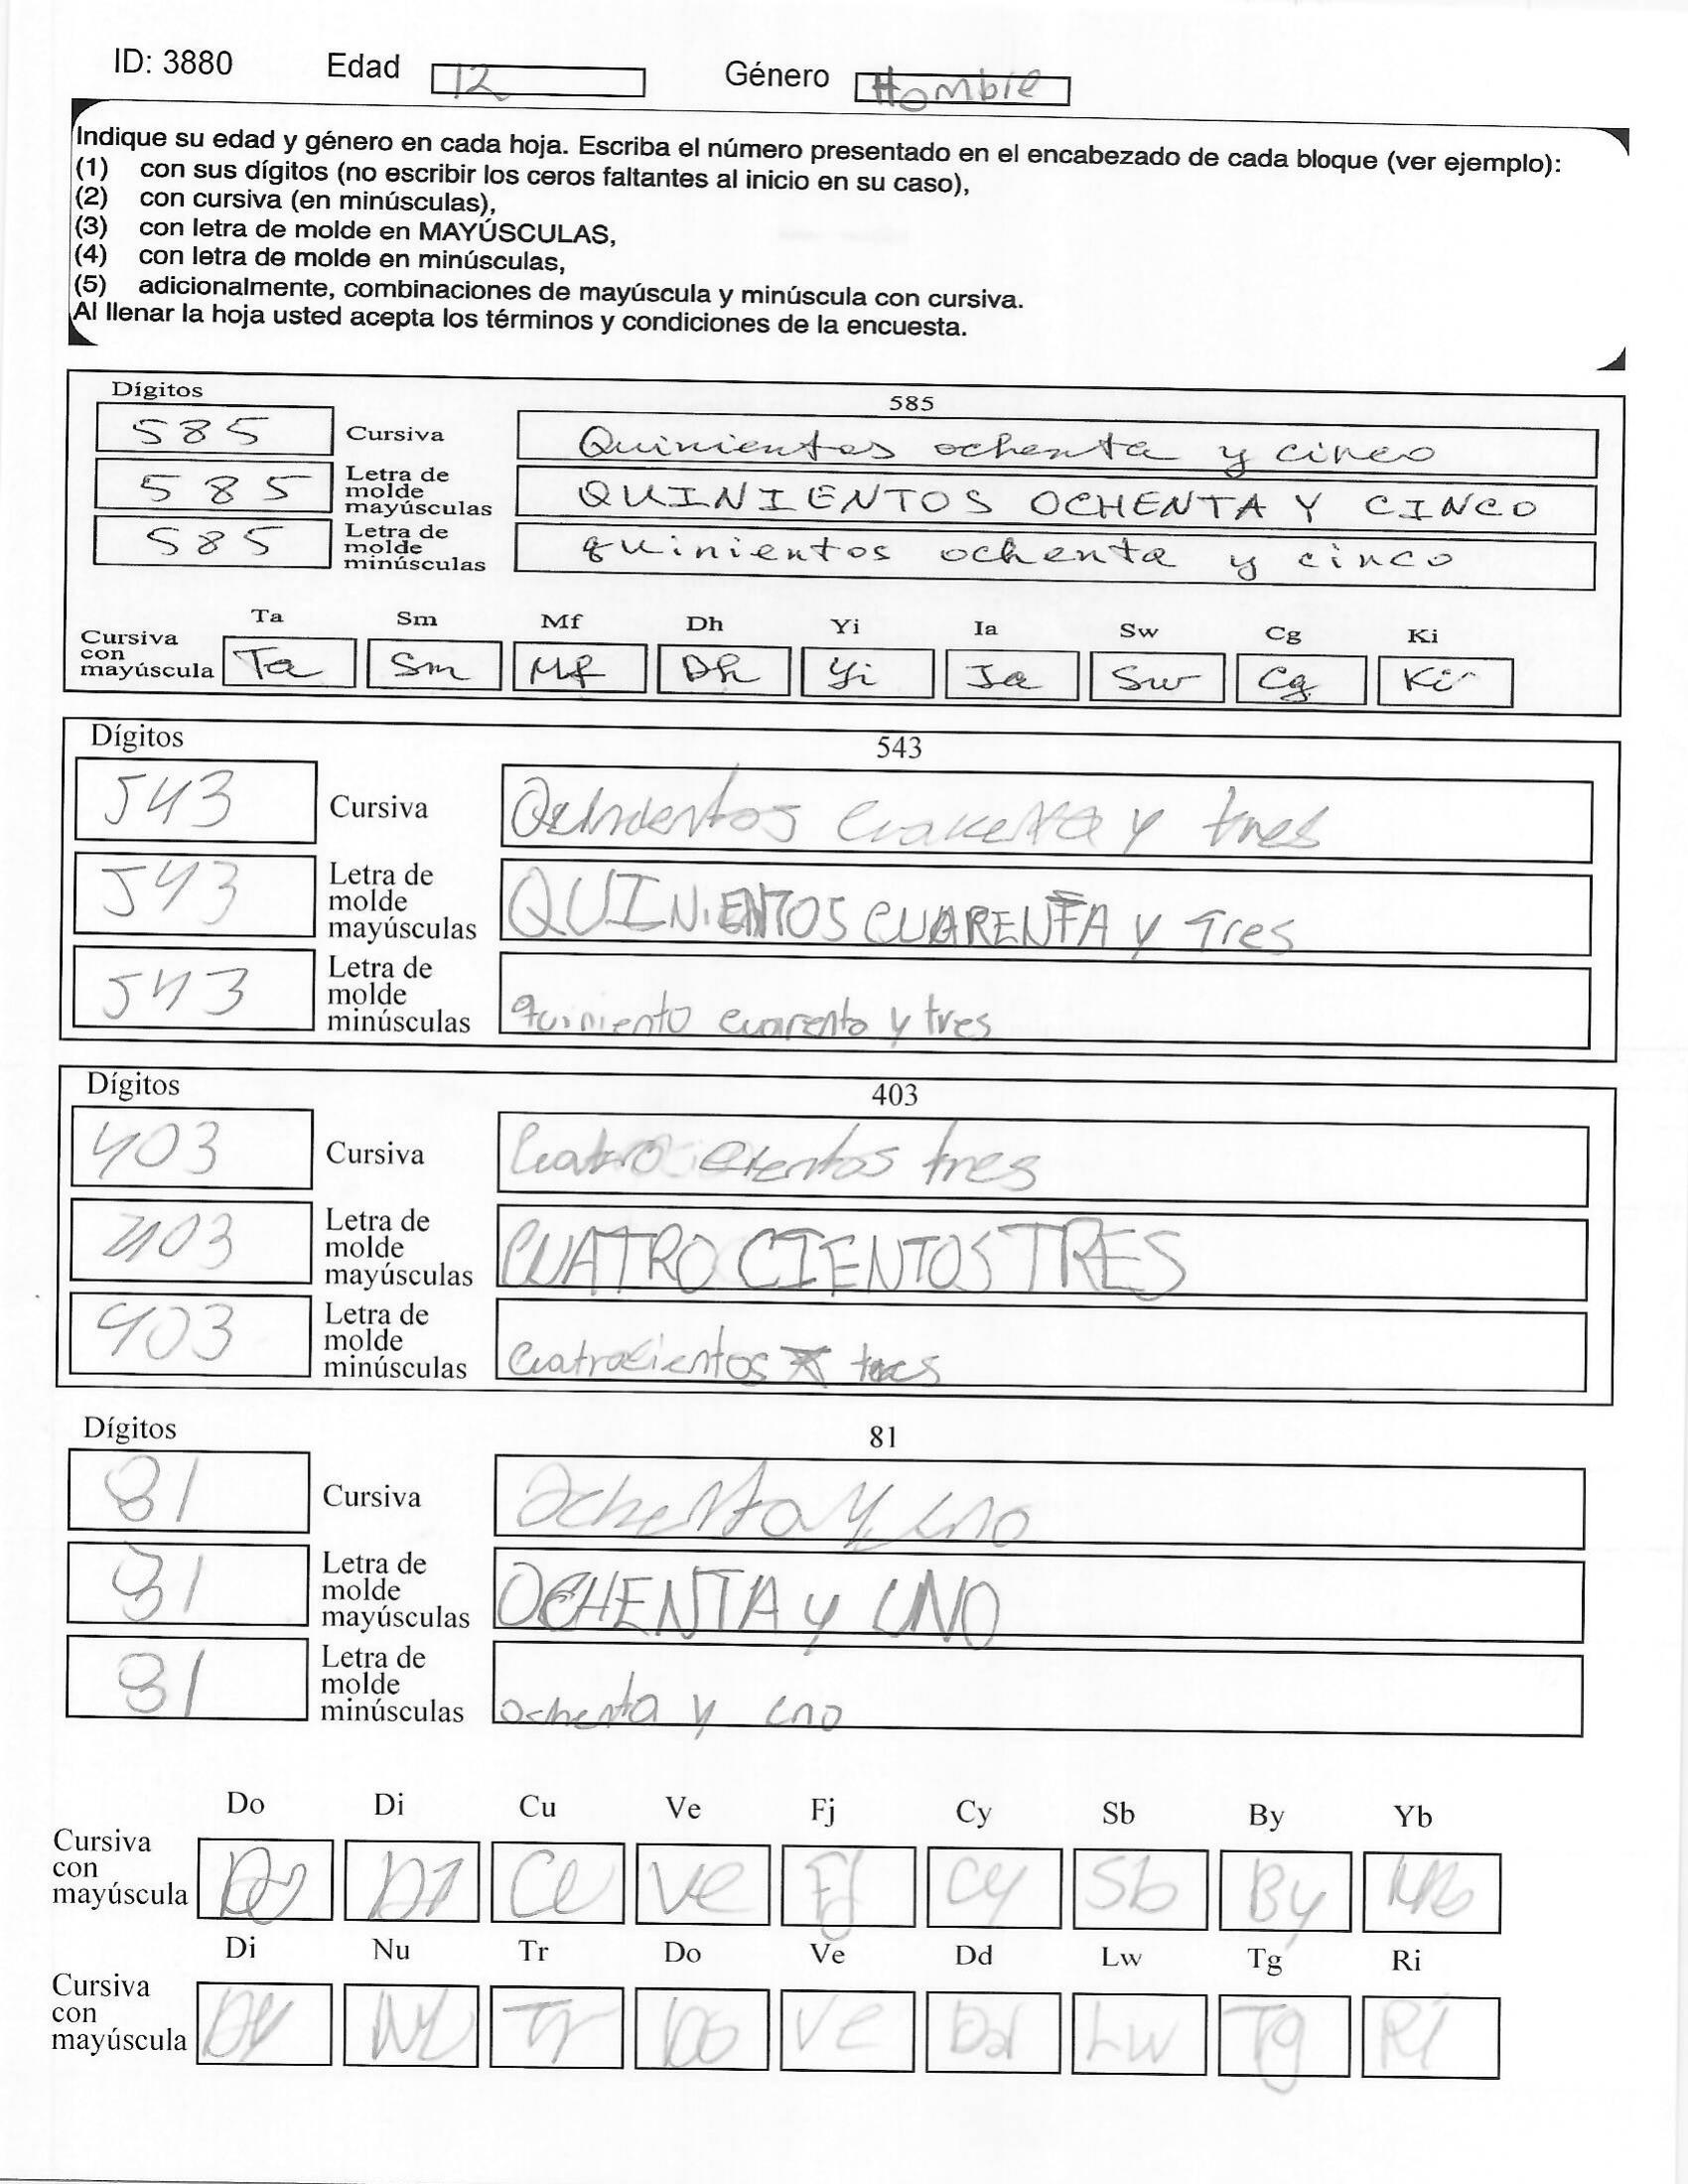 ID: 3880 Edad 12 Género Hombre
Indique su edad y género en cada hoja. Escriba el número presentado en el encabezado de cada bloque (ver ejemplo):
(1) con sus dígitos (no escribir los ceros faltantes al inicio en su caso),
(2) con cursiva (en minúsculas),
(3) con letra de molde en MAYÚSCULAS,
(4) con letra de molde en minúsculas,
(5) adicionalmente, combinaciones de mayúscula y minúscula con cursiva.
Al llenar la hoja usted acepta los términos y condiciones de la encuesta.
Dígitos 585
585 Cursiva Quinientos ochenta y cinco
585 Letra de molde mayúsculas QUINIENTOS OCHENTA Y CINCO
585 Letra de molde minúsculas quinientos ochenta y cinco
Ta Sm Mf Dh Yi Ia Sw Cg Ki
Cursiva con mayúscula Ta Sm Mf Dh Yi Ia Sw Cg Ki
Dígitos 543
543 Cursiva Quinientos cuarenta y tres
543 Letra de molde mayúsculas QUINIENTOS CUARENTA y Tres
543 Letra de molde minúsculas quiniento cuarenta y tres
Dígitos 403
403 Cursiva Cuatro cientos tres
403 Letra de molde mayúsculas CUATRO CIENTOS TRES
403 Letra de molde minúsculas Cuatrocientos tres
Dígitos 81
81 Cursiva Ochenta y uno
81 Letra de molde mayúsculas OCHENTA y UNO
81 Letra de molde minúsculas ochenta y uno
Do Di Cu Ve Fj Cy Sb By Yb
Cursiva con mayúscula Do Di Cu Ve Fj Cy Sb By Yb
Di Nu Tr Do Ve Dd Lw Tg Ri
Cursiva con mayúscula Di Nu Tr Do Ve Dd Lw Tg Ri